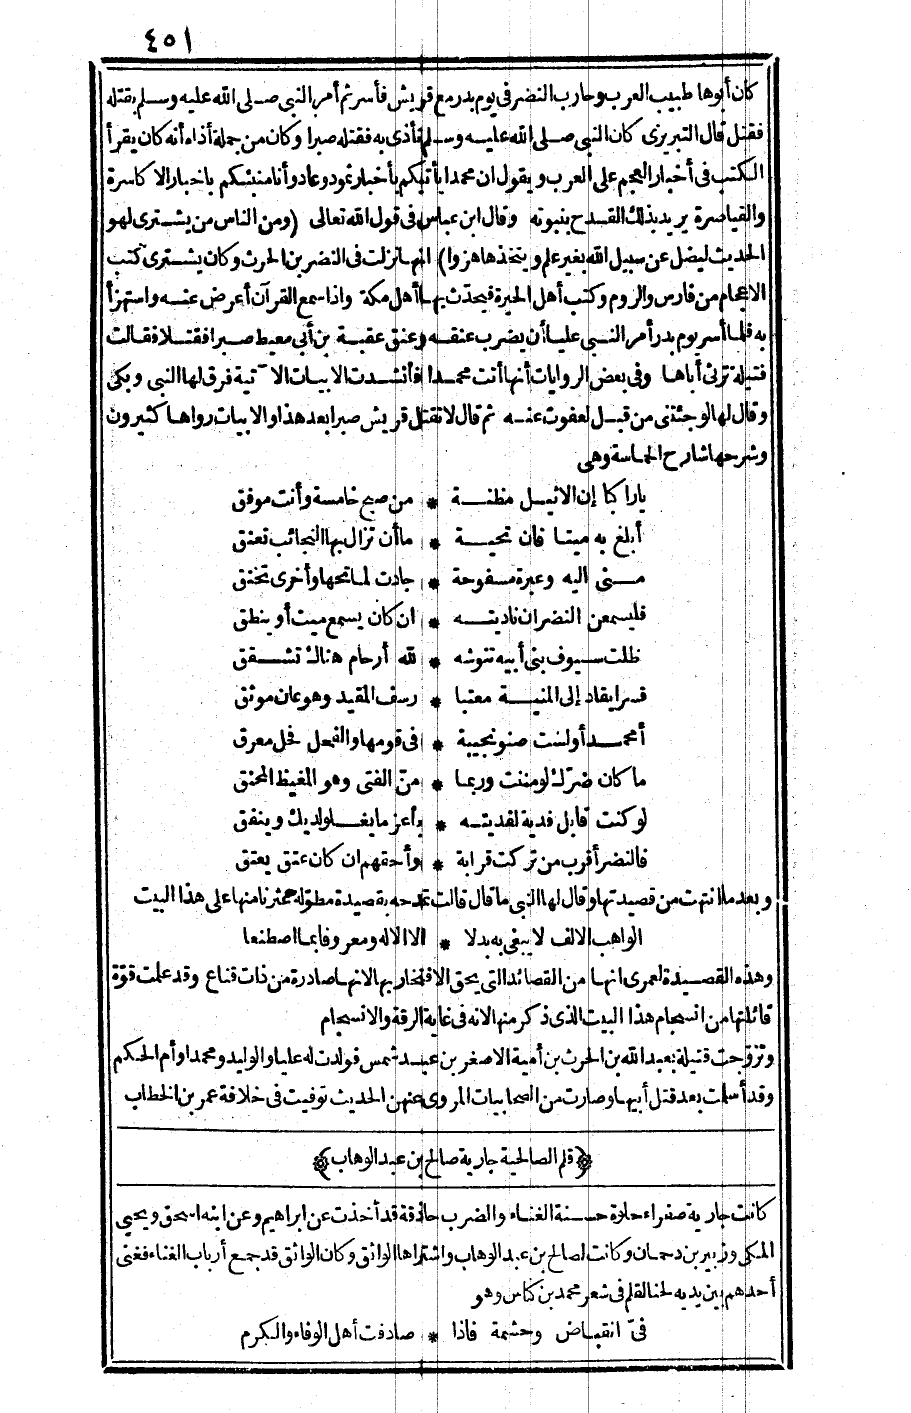 ٤٥١
كان أبوها طبيب العرب وحارب النضر في يوم بدر مع قريش فأسر ثم أمر النبي صلى الله عليه وسلم بقتله
فقتل قال التبريزى كان النبي صلى الله عليه وسلم تأذى به فقتله صبرا وكان من جملة أذاه أنه كان يقرأ
الكتب في أخبار العجم على العرب ويقول ان محمدا يأتيكم بأخبار ثمود وعاد وأنا منبئكم باخبار الاكاسرة
والقياصرة يريد بذلك القدح بنبوته وقال ابن عباس في قول الله تعالى (ومن الناس من يشترى لهو
الحديث ليضل عن سبيل الله بغير علم ويتخذها هزوا) انها نزلت في النضر بن الحرث وكان يشترى كتب
الاعجام من فارس والروم وكتب أهل الحيرة فيحدث بها أهل مكة واذا سمع القرآن أعرض عنه واستهزأ
به فلما أسر يوم بدر أمر النبي عليا أن يضرب عنقه وعنق عقبة بن أبي معيط صبرا فقتلا فقالت
قتيلة ترثى أباها وفي بعض الروايات أنها أتت محمدا فأنشدت الابيات الآتية فرق لها النبي وبكى
وقال لها لو جئتنى من قبل لعفوت عنه ثم قال لا تقتل قريش صبرا بعد هذا والابيات رواها كثيرون
وشرحها شارح الحماسة وهى
يا راكبا إن الاثيل مظنة * من صبح خامسة وأنت موفق
أبلغ به ميتا فان تحية * ما أن تزال بها النجائب تعنق
منى اليه وعبرة مسفوحة * جادت لماتحها وأخرى تخنق
فليسمعن النضر ان ناديته * ان كان يسمع ميت أو ينطق
ظلت سيوف بنى أبيه تنوشه * لله أرحام هناك تشقق
قسرا يقاد إلى المنية متعبا * رسف المقيد وهو عان موثق
أمحمد أولست صنو نجيبة * فى قومها والفحل فحل معرق
ما كان ضرك لو مننت وربما * من الفتى وهو المغيظ المحنق
لو كنت قابل فدية لفديته * بأعز ما يغلو لديك وينفق
فالنضر أقرب من تركت قرابة * وأحقهم ان كان عتق يعتق
وبعد ما انتهت من قصيدتها وقال لها النبي ما قال قالت تمدحه بقصيدة مطولة عثرنا منها على هذا البيت
الواهب الالف لا يبغى به بدلا * الا الاله ومعروفا بما اصطنعا
وهذه القصيدة لعمرى انها من القصائد التى يحق الافتخار بها لانها صادرة من ذات قناع وقد علمت قوّة
قائلتها من انسجام هذا البيت الذى ذكر منها لانه فى غاية الرقة والانسجام
وتزوّجت قتيلة بعبد الله بن الحرث بن أمية الاصغر بن عبد شمس فولدت له عليا والوليد ومحمدا وأم الحكم
وقد أسلمت بعد قتل أبيها وصارت من الصحابيات المروى عنهن الحديث توفيت فى خلافة عمر بن الخطاب
﴿قلم الصالحية جارية صالح بن عبد الوهاب﴾
كانت جارية صفراء حلوة حسنة الغناء والضرب حاذقة قد أخذت عن ابراهيم وعن ابنه اسحق ويحيى
المكى وزبير بن دحمان وكانت لصالح بن عبد الوهاب واشتراها الواثق وكان الواثق قد جمع أرباب الغناء فغنى
أحدهم بين يديه لحنا لقلم فى شعر محمد بن كناس وهو
فىّ انقباض وحشمة فاذا * صادفت أهل الوفاء والكرم